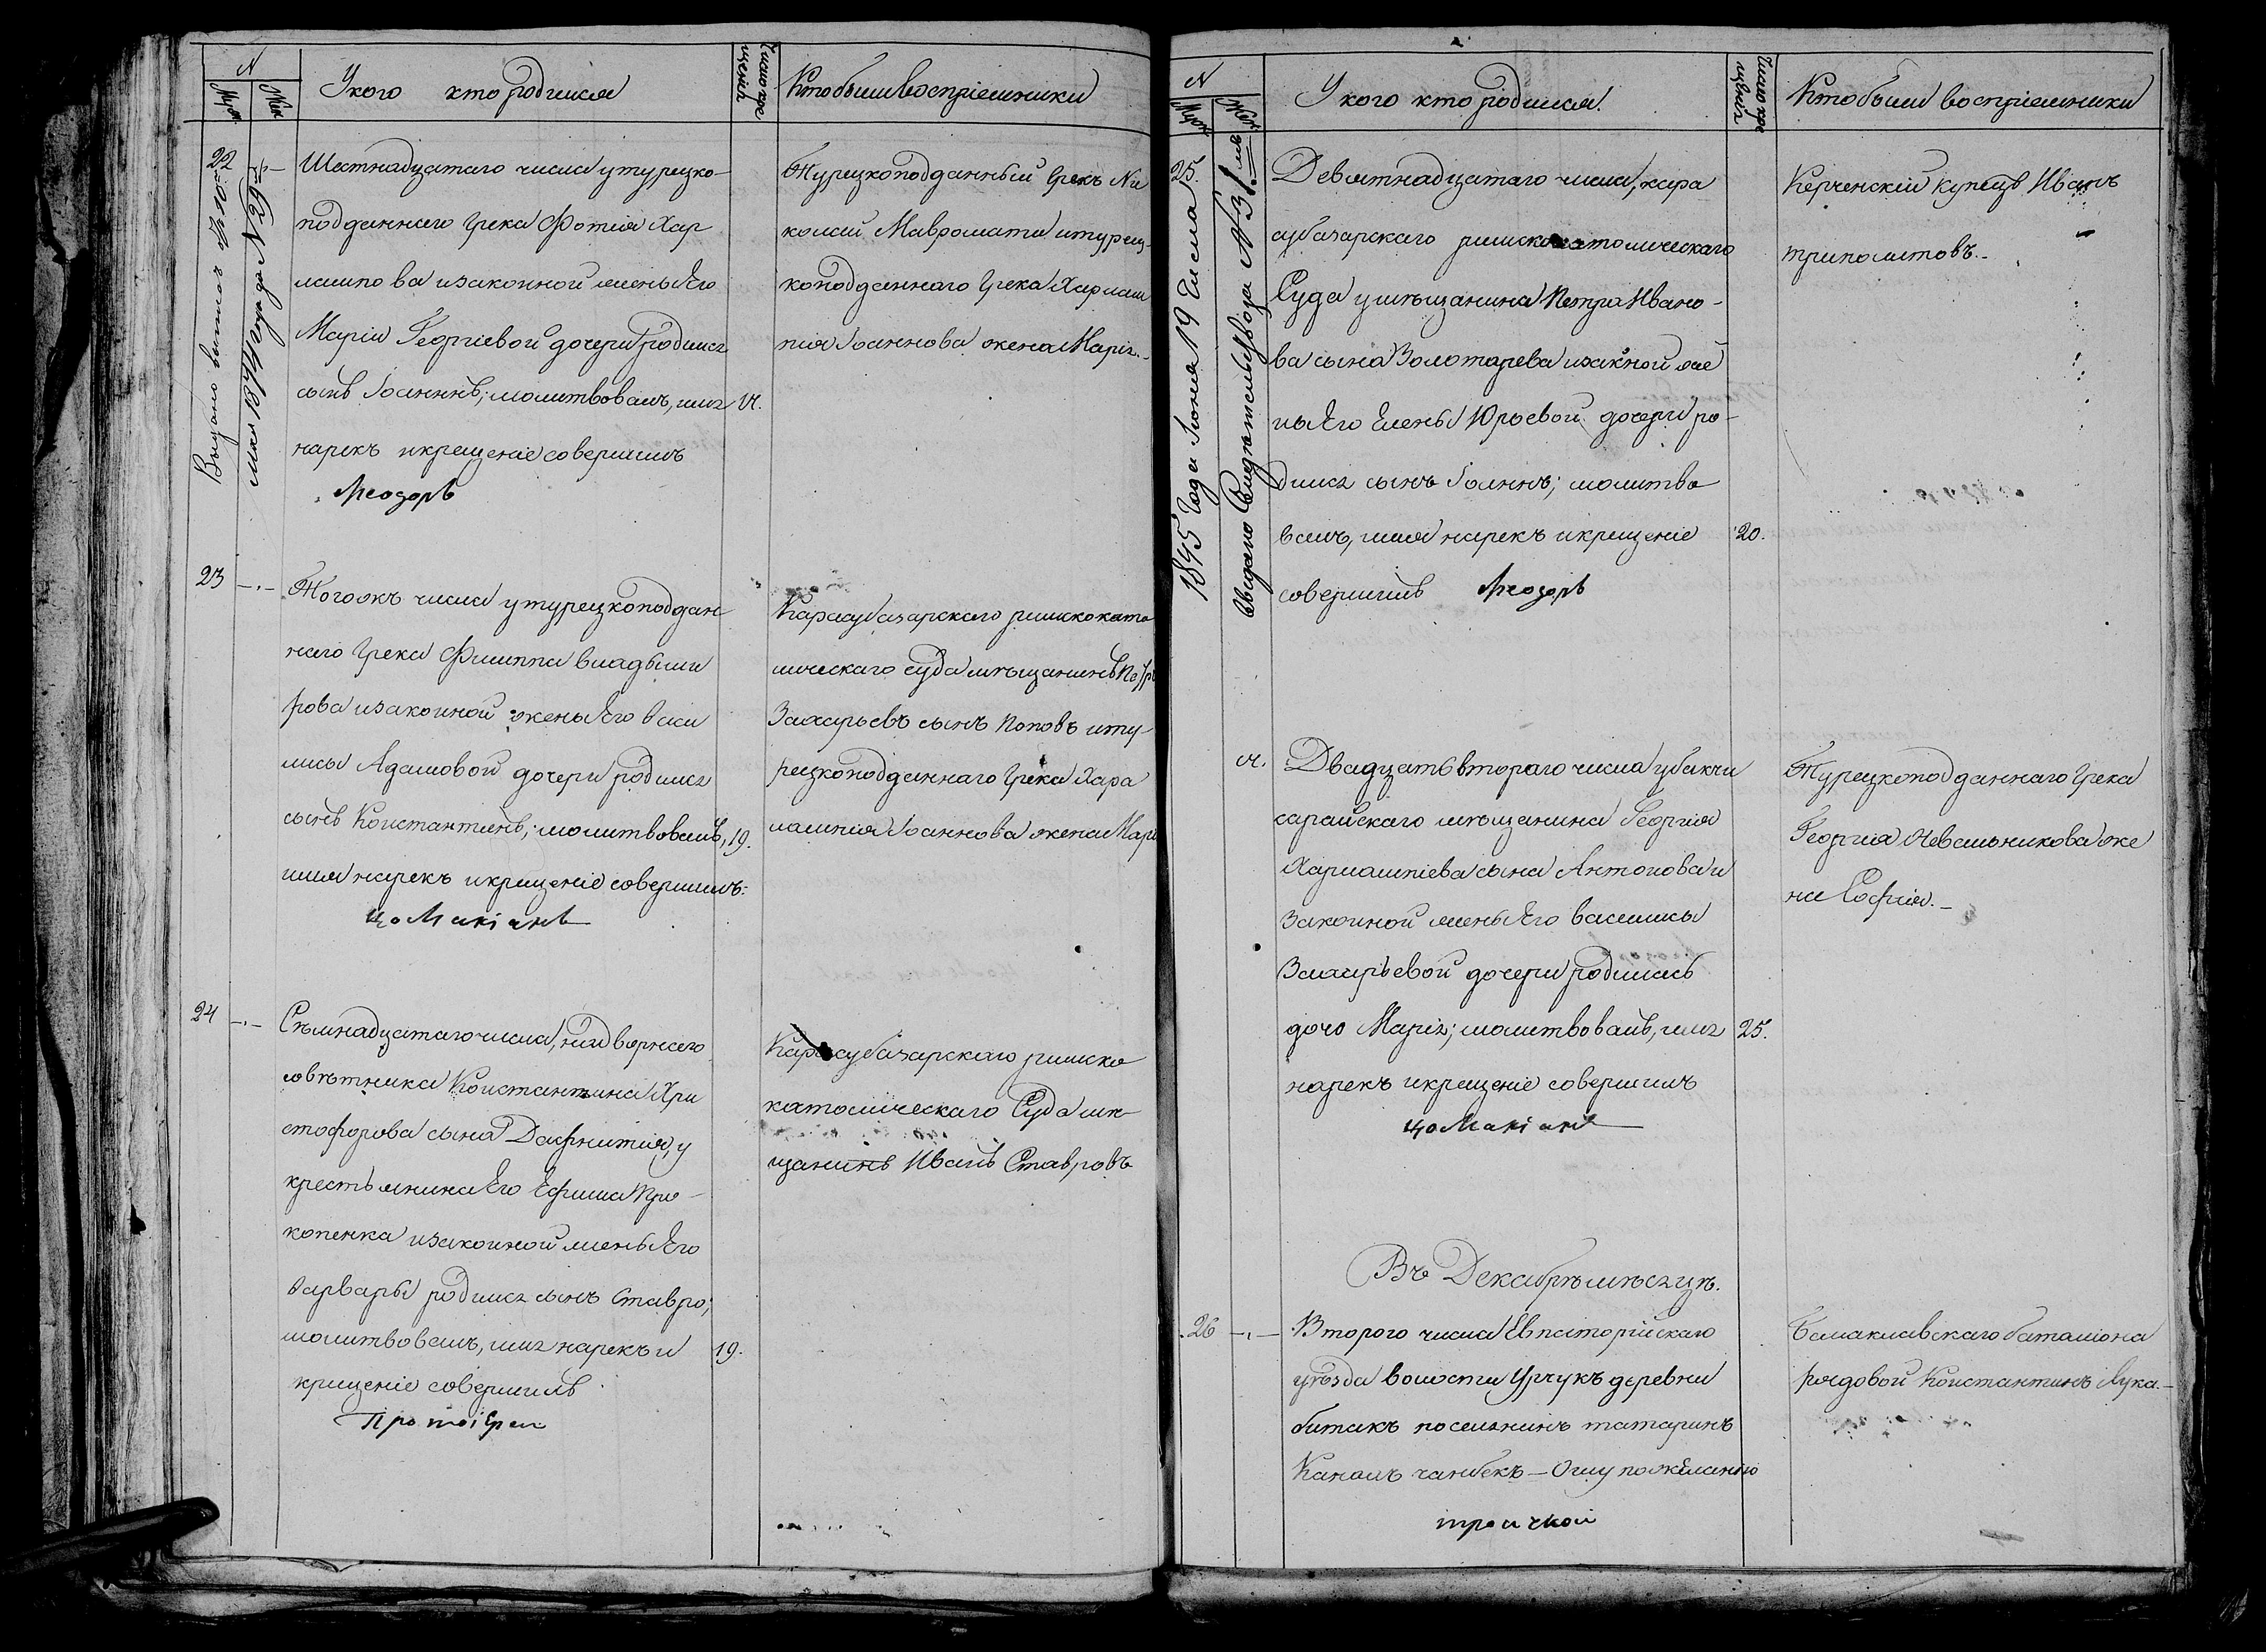 N
Муж.
Жен.
У кого кто родился
Число крещенiя
Кто были воспрiемники
22
Шестнадцатаго числа у турецко-
подданнаго Грека Фотия Хар
лампова и законной жены Его
Марiи Георгiевой дочери родился
сынъ Iоаннъ; молитвовалъ, имя
нарекъ и крещенiе совершилъ
Турецкоподданный Грекъ Ни
колай Мавромати и турец-
коподданнаго Грека Харлам
пiя Iоаннова жена Марiя.-
23
Тогожъ числа у турецкоподдан
наго Грека Филиппа владыми
рова и законной жены Его Васи
лисы Адамовой дочери родился
сынъ Константинъ; молитвовалъ,
19.
имя нарекъ и крещенiе совершилъ:
Карасубазарскаго римскокато
лическаго суда мѣщанинъ Петръ
Захарьевъ сынъ Поповъ и ту-
рецкоподданнаго Грека Хара
лампiя Iоаннова жена Марi
24
Сѣмнадцатаго числа, надворнаго
совѣтника Константина Хри
стофорова сына Дафнития, у
крестьянина Его Ефима Про-
копенка и законной жены Его
Варвары родился сынъ Ставро;
молитвовалъ, имя нарекъ и
19.
крещенiе совершилъ
Протоiереи
Карасубазарскаго римско
католическаго Суда мѣ-
щанинъ Иванъ Ставровъ
N
Муж.
Жен.
У кого кто родился.
Число крещенiя
Кто были воспрiемники
25.
1845 Года Iюня 19 числа
Выдано Свидѣтельство за №31.мъ
Девятнадцатаго числа, кара
субазарскаго римскокатолическаго
Суда у мѣщанина Петра Ивано-
ва сына Золотарева и закной же
ны Его Елены Юрьевой дочери ро-
дился сынъ Iоаннъ; молитво
валъ, имя нарекъ и крещенiе
20.
совершилъ
Керченскiй купецъ Иванъ
триполитовъ.-
Двадцать втораго числа у бакчи
сарайскаго мѣщанина Георгия
Харлампiева сына Антонова и
законной жены Его василисы
Захарьевой дочери родилась
дочь Марiя; молитвовалъ, имя
25.
нарекъ и крещенiе совершилъ
Турецкоподданнаго Грека
Георгия Невальникова же
на Софiя.-
Въ Декабрѣ мѣсяцѣ.
26
Второго числа Евпаторiйскаго
уѣзда волости Урчукъ деревни
битакъ поселянинъ татаринъ
Канамъ чанбекъ-Оглу по желанiю
Балаклавскаго баталiона
рядовой Константинъ Лука.-